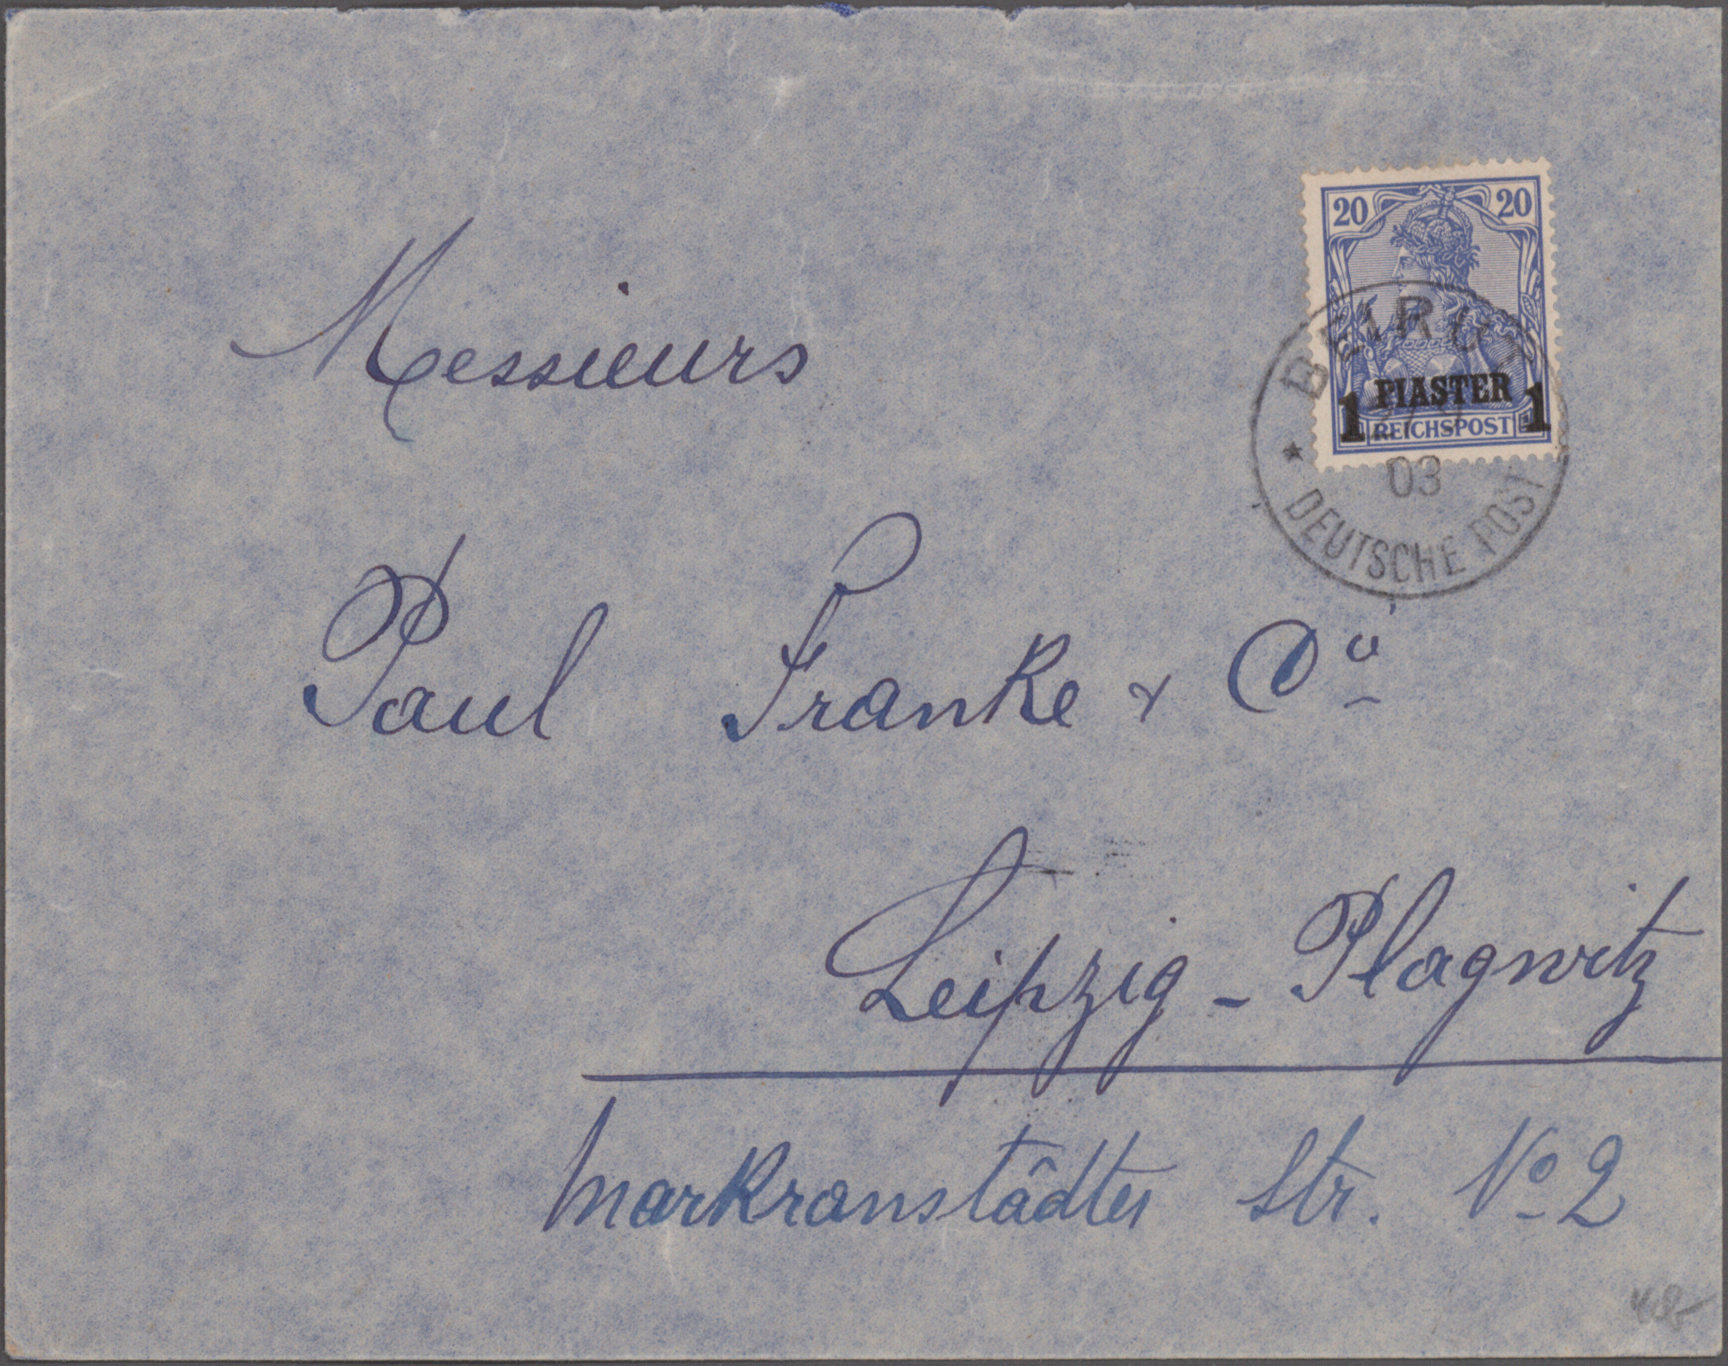 20 20
BEIRUT
1 PIASTER 1
REICHSPOST
03
* DEUTSCHE POST
Messieurs
Paul Franke & Co
Leipzig - Plagwitz
Markranstâdter Str. No 2